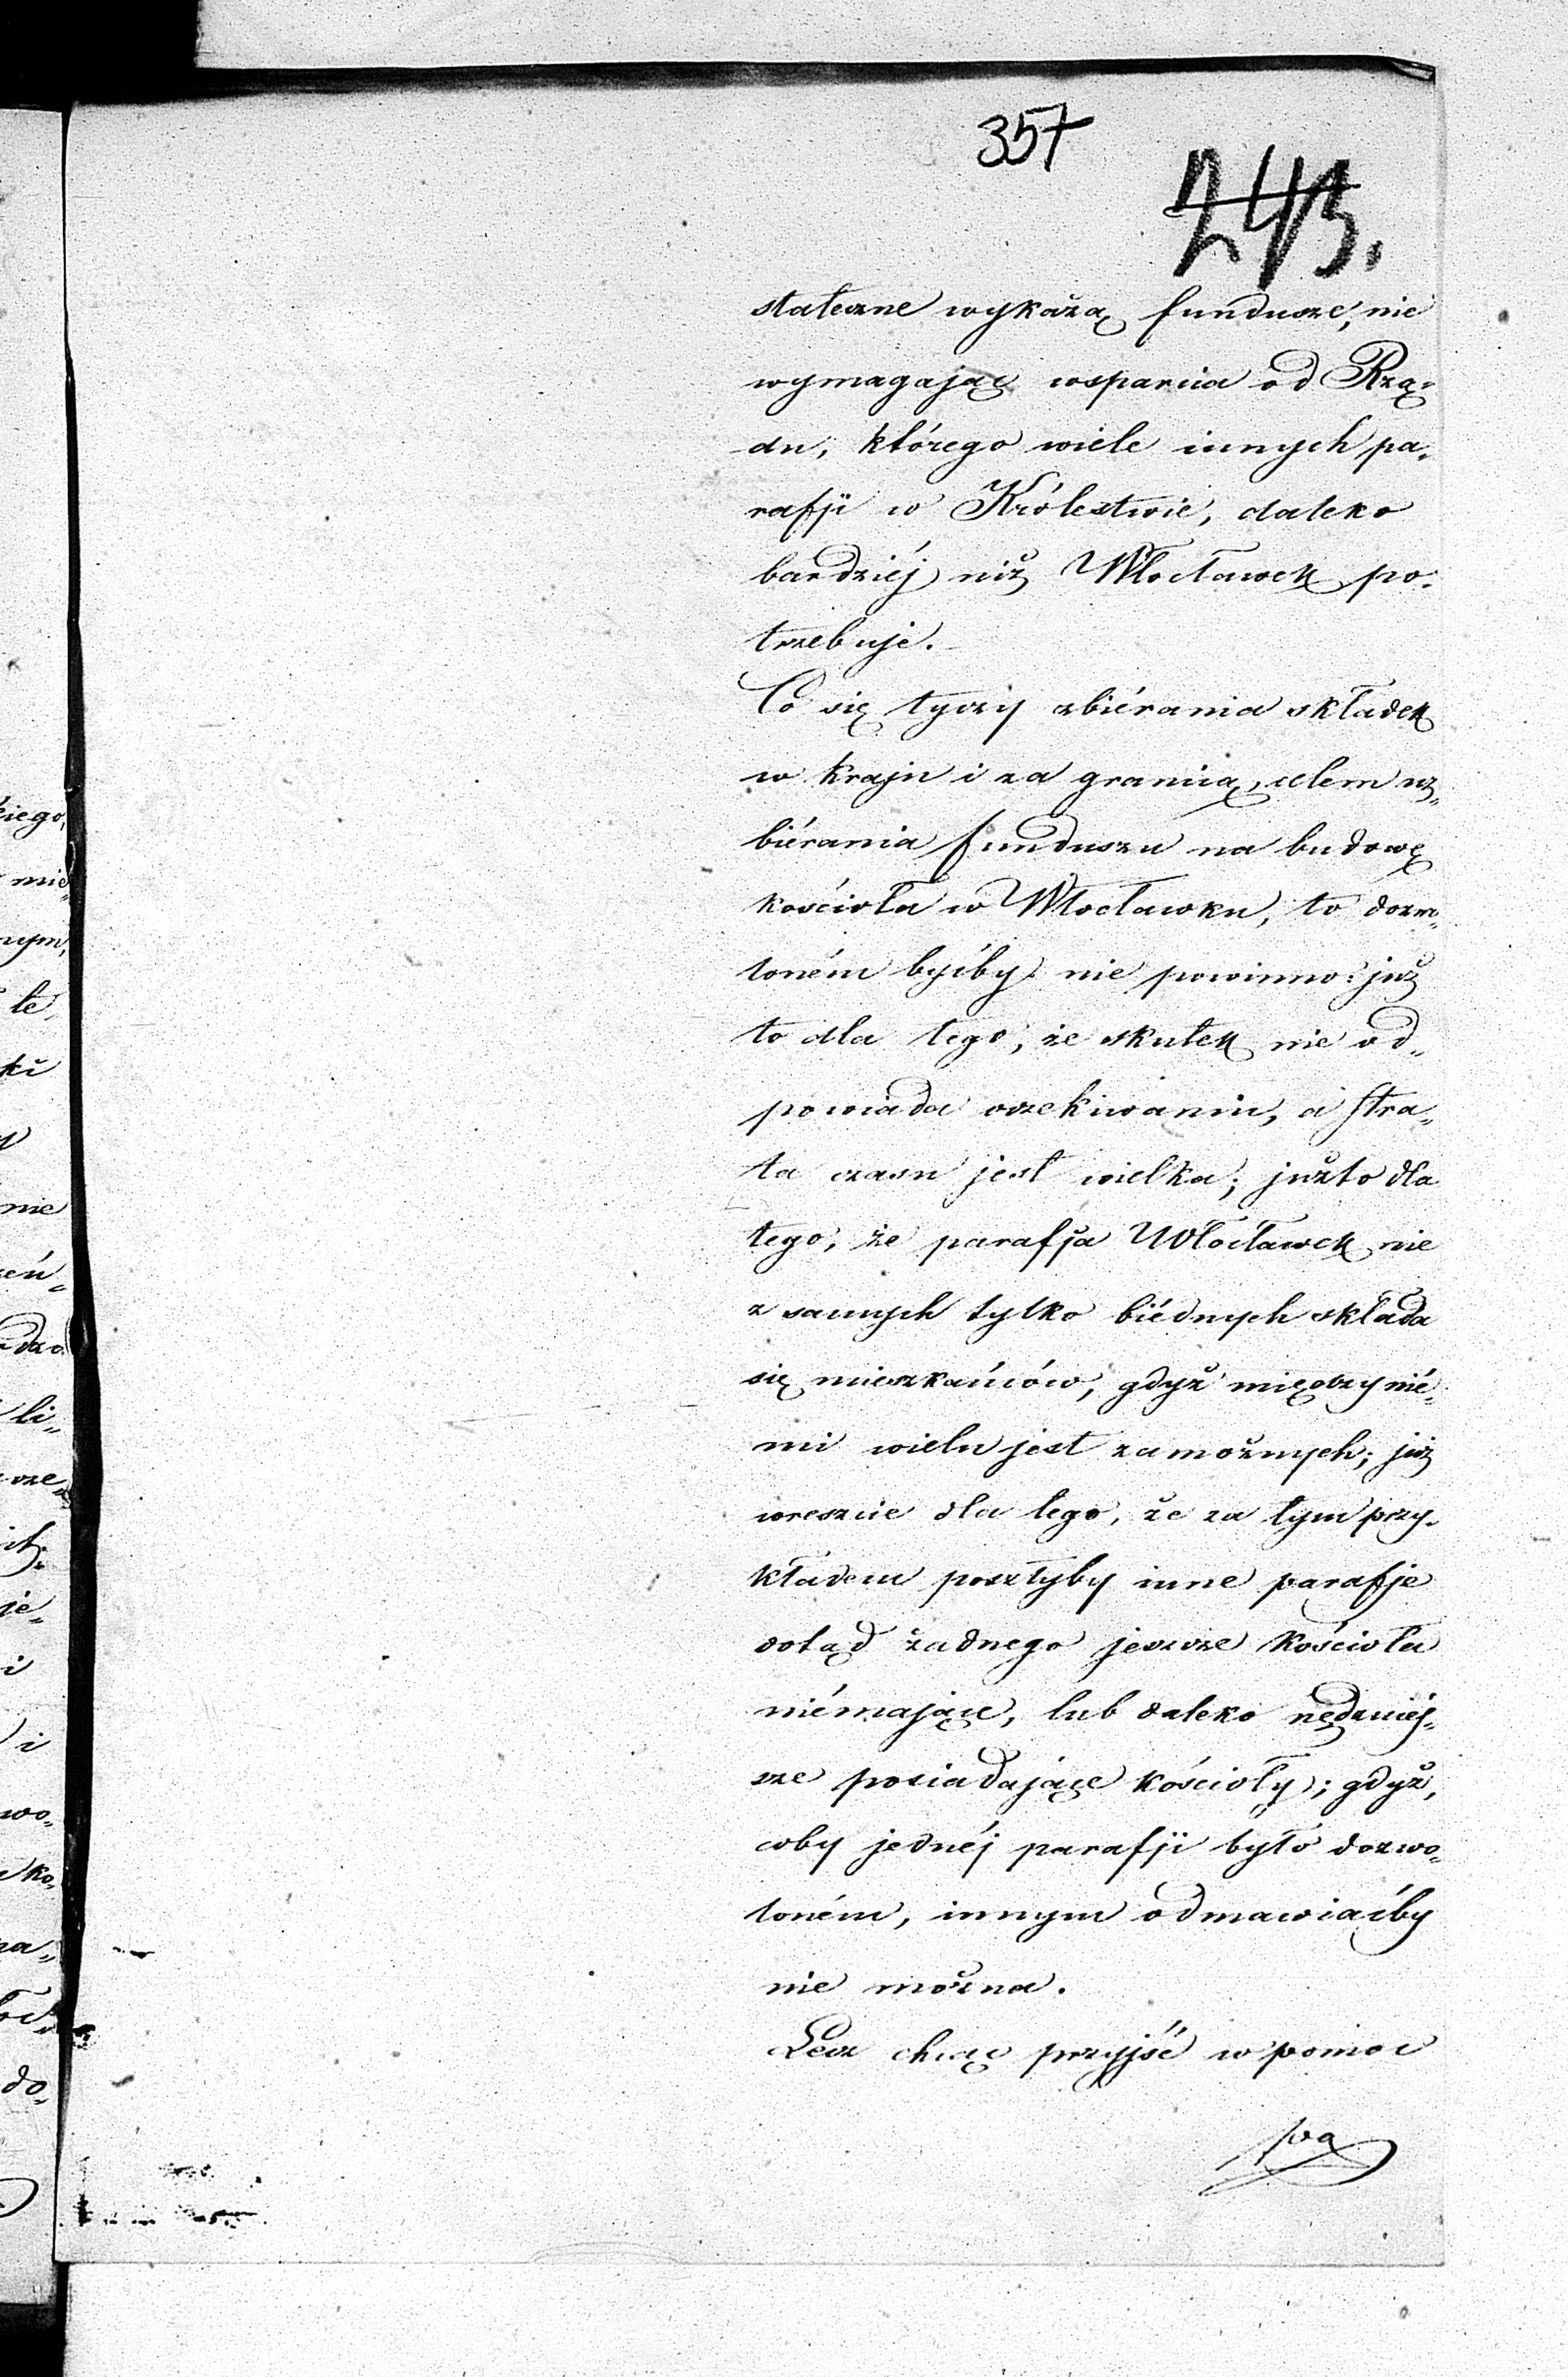 357
243.
stateczne wykażą fundusze, nie
wymagając wsparcia od Rzą-
du, którego wiele innych pa-
rafji w Królestwie, daleko
bardziéj niż Włocławek po-
trzebuje.
Co się tyczy zbiérania składek
w kraju i za granicą, celem uz-
biérania funduszu na budowę
kościoła w Włocławku, to dozwo-
loném byćby nie powinno: już
to dla tego, że skutek nie od-
powiada oczekiwaniu, a stra-
ta czasu jest wielka; jużto dla
tego, że parafja Włocławek nie
z samych tylko biédnych składa
się mieszkańców, gdyż między nié-
mi wielu jest zamożnych; już
wreszcie dla tego, że za tym przy-
kładem poszłyby inne parafje
dotąd żadnego jeszcze kościoła
niémające, lub daleko nędzniéj-
sze posiadające kościoły; gdyż,
coby jednéj parafji było dozwo-
loném, innym odmawiaćby
nie można.
Lecz chcąc przyjść w pomoc
pa
kiego,
mie-
nym,
te,
ki
nie
zeń-
dzo
li-
sze-
ich
je-
i
i
wo-
ko-
na-
do-